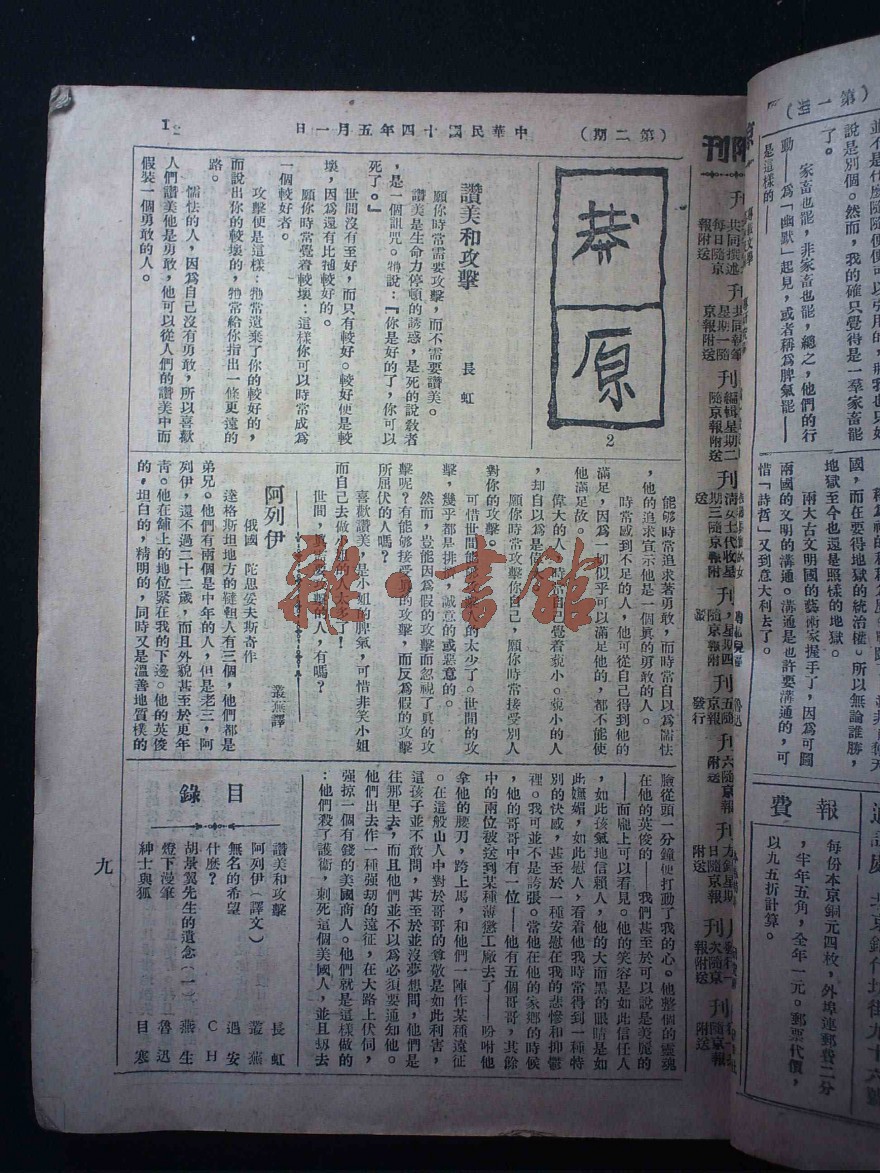 中華民國十四年五月一日
（第二期）
12
莽原
2
讚美和攻擊
長虹
願你時常需要攻擊，而不需要讚美。
讚美是生命力停頓的誘惑，是死的說教者
，是一個詛咒。牠說：『你是好的了，你可以
死了。』
世間沒有至好，而只有較好。較好便是較
壞，因為還有比牠較好的。
願你時常覺着較壞：這樣你可以時常成為
一個較好者。
攻擊便是這樣：牠常遺棄了你的較好的，
而說出你的較壞的，牠常給你指出一條更遠的
路。
懦怯的人，因為自己沒有勇敢，所以喜歡
人們讚美他是勇敢，他可以從人們的讚美中而
假裝一個勇敢的人。
能够時常追求著勇敢，而時常自以為懦怯
，他的追求宣示他是一個真的勇敢的人。
時常感到不足的人，他可從自己得到他的
滿足，因為一切似乎可以滿足他的，都不能使
他滿足故。
偉大的人，時常自己覺着藐小。藐小的人
，却自以為是偉大。
願你時常攻擊你自己，願你時常接受別人
對你的攻擊。
可惜世間攻擊人的人太少了。世間的攻
擊，幾乎都是排斥，誠意的或惡意的。
然而，豈能因為假的攻擊而忽視了真的攻
擊呢？有能够接受真的攻擊，而反為假的攻擊
所屈伏的人嗎？
喜歡讚美，是小姐的脾氣，可惜非笑小姐
而自己去做小姐的人太多了！
世間，真的攻擊的人，有嗎？
阿列伊
俄國　陀思妥夫斯奇作
叢蕪譯
達格斯坦地方的韃靼人有三個，他們都是
弟兄。他們有兩個是中年的人，但是老三，阿
列伊，還不過二十二歲，而且外貌甚至於更年
青。他在鋪上的地位緊在我的下邊。他的英俊
的，坦白的，精明的，同時又是溫善地質樸的
臉從頭一分鐘便打動了我的心。他整個的靈魂
在他的英俊的——我們甚至於可以說是美麗的
——面龐上可以看見。他的笑容是如此信任人
，如此孩氣地信賴人，他的大而黑的眼睛是如
此嫵媚，如此慰人，看着他我時常得到一種特
別的快感，甚至於一種安慰在我的悲慘和抑鬱
裡。我可並不是誇張。當他在他的家鄉的時候
，他的哥哥中有一位——他有五個哥哥，其餘
中的兩位被送到某種薄懲工廠去了——吩咐他
拿他的腰刀，跨上馬，和他們一陣作某種遠征
。在這般山人中對於哥哥的尊敬是如此利害，
這孩子並不敢問，甚至於並沒夢想問，他們是
往那里去，而且他們並不以為必須要通知他。
他們出去作一種强刧的遠征，在大路上伏伺，
强掠一個有錢的美國商人。他們就是這樣做的
：他們殺了護衞，刺死這個美國人，並且刼去
目錄
讚美和攻擊　長虹
阿列伊（譯文）　叢蕪
無名的希望　遇安
什麼？　CH
胡景翼先生的遺念（一）　燕生
燈下漫筆　魯迅
紳士與狐　目寒
九
雜·書館
說是別個。然而，我的確只覺得是一羣家畜能
了。
家畜也罷，非家畜也罷，總之，他們的行
動——為「幽默」起見，或者稱為脾氣罷——
是這樣的——
國，而在要得地獄的統治權。所以無論誰勝，
地獄至今也還是照樣的地獄。
兩大古文明國的藝術家握手了，因為可圖
兩國的文明的溝通。溝通是也許要溝通的，可
惜「詩哲」又到意大利去了。
報費
每份本京銅元四枚，外埠連郵費二分
，半年五角，全年一元。郵票代價，
以九五折計算。